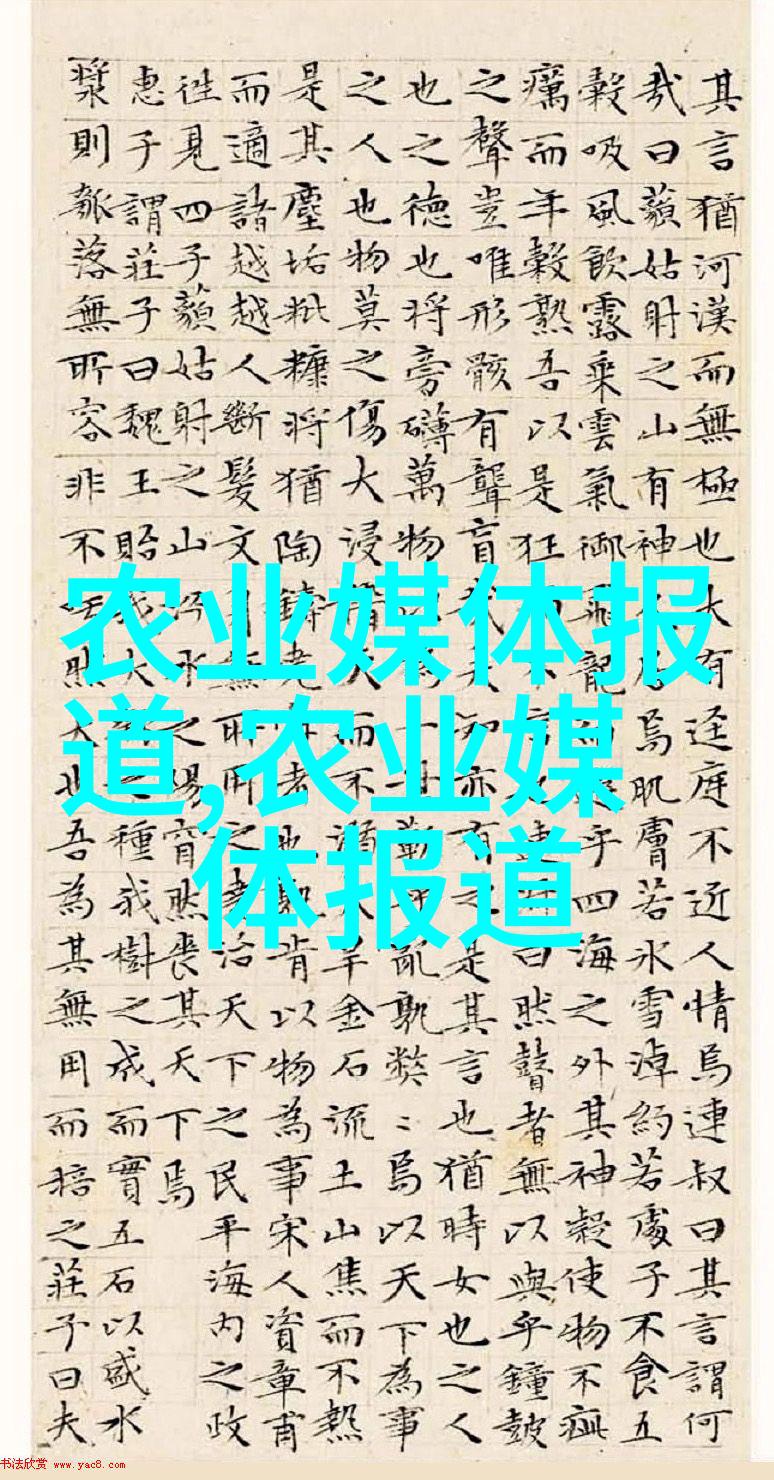 其言猶河漢而無極也大有逕庭不近人情焉連叔曰其言謂何
哉曰藐姑射之山有神居焉肌膚若氷雪淖約若處子不食五
穀吸風飲露乗雲氣御飛龍乎四海之外其神凝使物不疵
癘而年穀熟吾以是狂不連曰然瞽者無以與乎鐘鼓
之聲豈唯形骸有聾盲哉夫知亦有之是其言也猶時女也之人
也之德也將旁礴萬物一世蘄乎亂孰弊〻焉以天下為事
之人也物莫之傷大浸稽天而不溺大旱金石流土山焦而不熱
是其塵垢粃糠將猶陶鑄堯者也孰肯以物為事宋人資章甫
而適諸越越人斷髮文無所用之堯治天下之民平海内之政
往見四子藐姑射之山汾水之陽窅然喪其天下焉
惠子謂莊子曰魏王貽我大之種我樹之成而實五石以盛水
漿則瓠落無所容非不然大也吾為其無用而掊之莊子曰夫
农业媒体报
道,农业媒
体报道
书法欣赏 www.yac8.com